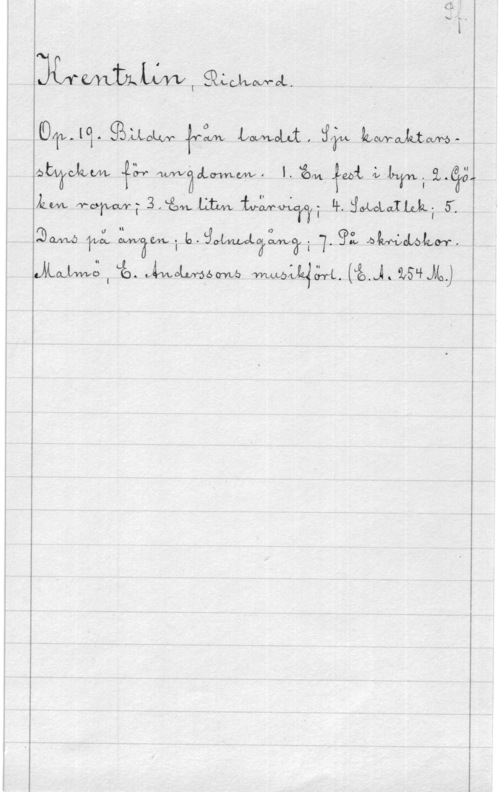 Pf.
Krentzlin, Richard.
Op. 19. Bilder från landet. Sju karaktärs-
stycken för ungdomen. 1. En fest i byn; 2. Gö-
ken ropar; 3. En liten tvärvigg; 4. Soldatlek; 5.
Dans på ängen; 6. Solnedgång; 7. På skridskor.
Malmö, E. Anderssons musikförl. (E. A. 254 M.)